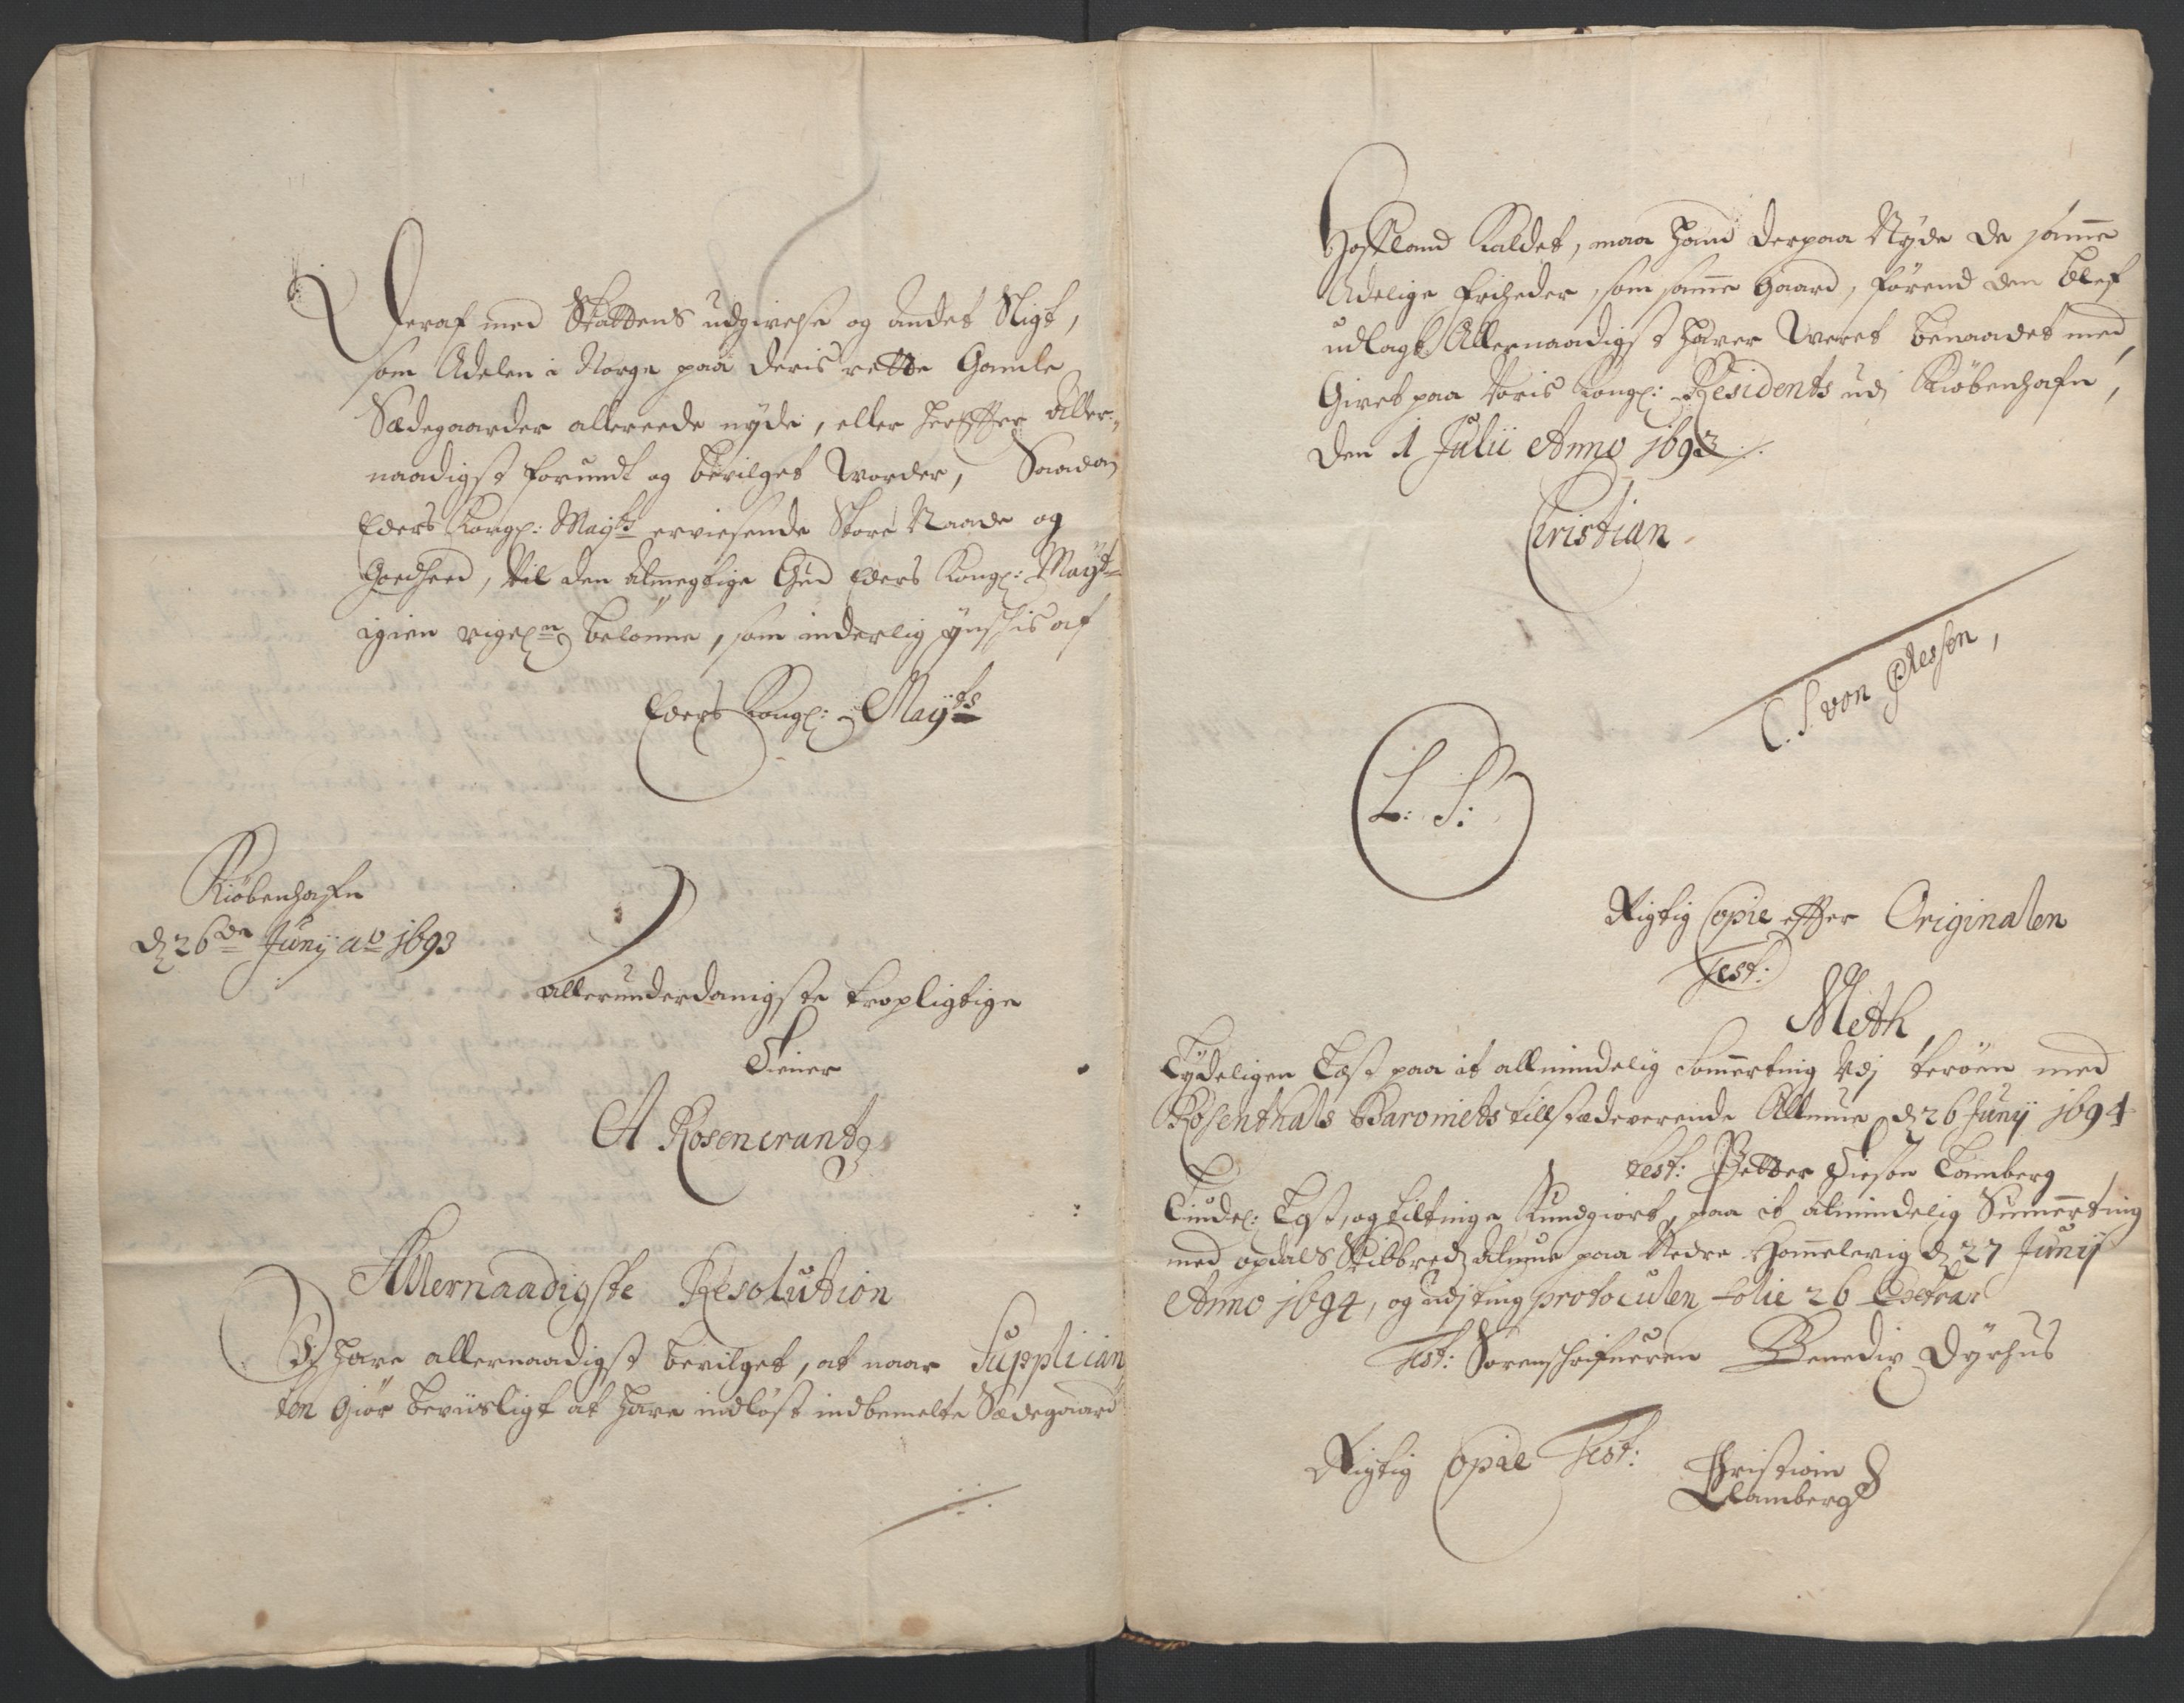 Heraf med Skattens udgivelse og andet Sligt,
som Adelen i Norge paa deris rette Gamle
Sædegaarder allereede nyde, eller herefter aller-
naadigst forundt og bevilget worder, Saadan
Eders Kongl: Mayts erviesende Store Naade og
Goedheed, Vil den Almegtige Gud Eders Kongl: Mayt
igien rigel belønne, som inderlig ynskis af
Eders Kongl: Mayts
Kiøbenhafn
d 26de Junij ao 1693
allerunderdanigste tropligtige
Tiener
A Rosencrantz
Allernaadigste Resolution
Vi have allernaadigst bevilget, at naar Supplican
ten Giør beviisligt at have indløst indbemelte Sædegaard
Hafland kaldet, maa hand derpaa Nyde de samme
Adelige friheder, som samme Gaard, førend den blef
udlagt Allernaadigst haver Weret benaadet med,
Givet paa Voris Kongl: Residents udj Kiøbenhafn,
den 1 Julii Anno 1693 ./.
Christian
C. S. von Plessen,
L: S:
Rigtig Copie efter Originalen
Test:
Meth
Tydeligen Læst paa it allmindelig Somerting Vdj terøen med
Rosenthals Baroniets tillstædeverende Allmue d 26 Junij 1694
test: Petter Lamberg
Tindel: Læst, og tiltinge Kundgiort, paa et almindelig Sumerting
med opdals Skibbred almue paa Nedre Hommelevig d 27 Junij
Anno 1694, og udj ting protoculen folie 26 Extrat
Test: Sorenschrifueren Benedix Dyrhus
Rigtig Copie Test:
Christian
Lamberg